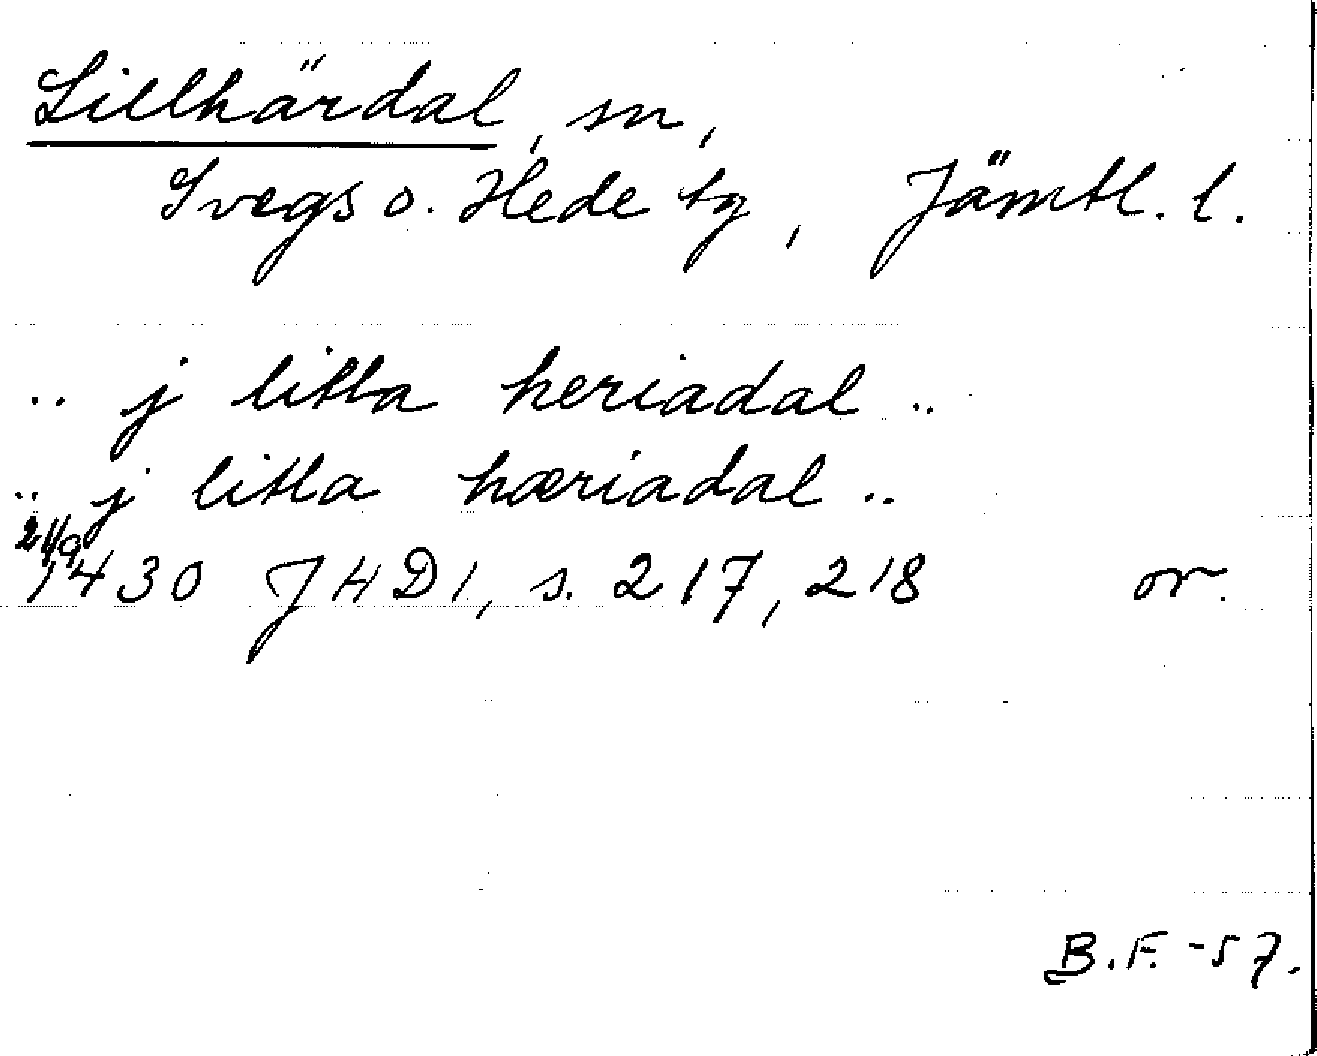 Lillhärdal, sn,
Svegs o. Hede tg, Jämtl. l.
.. j litla heriadal ..
.. j litla hæriadal ..
21/9
1430 JHD1, s. 217, 218 or.
B.F. -57.